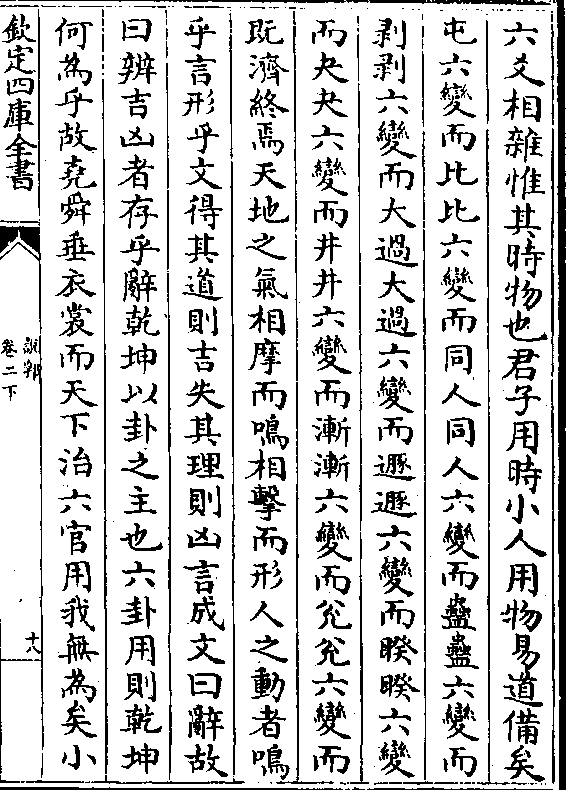 六爻相雜惟其時物也君子用時小人用物易道備矣
屯六變而比比六變而同人同人六變而蠱蠱六變而
剥剥六變而大過大過六變而遯遯六變而暌暌六變
而夬夬六變而井井六變而漸漸六變而兊兊六變而
既濟終焉天地之氣相摩而鳴相擊而形人之動者鳴
乎言形乎文得其道則吉失其理則凶言成文曰辭故
曰辨吉凶者存乎辭乾坤以卦之主也六卦用則乾坤
何為乎故堯舜垂衣裳而天下治六官用我無為矣小
欽定四庫全書
說郛
卷二下
十八